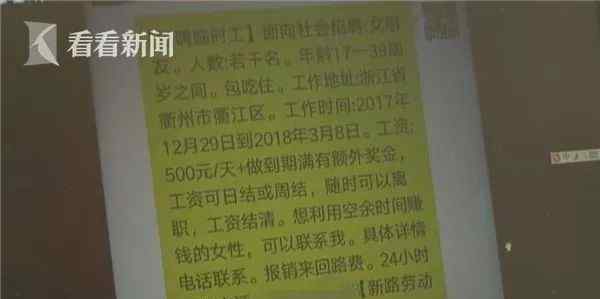 看看新闻
聘临时工】面向社会招聘:女朋
友。人数:若干名。年龄17—39周
岁之间。包吃住。工作地址:浙江省
衢州市衢江区。工作时间:2017年
12月29日到2018年3月8日。工资:
500元/天+做到期满有额外奖金,
工资可日结或周结，随时可以离
职，工资结清。想利用空余时间赚
钱的女性，可以联系我。具体详情
电话联系。报销来回路费。24小时
【新路劳动